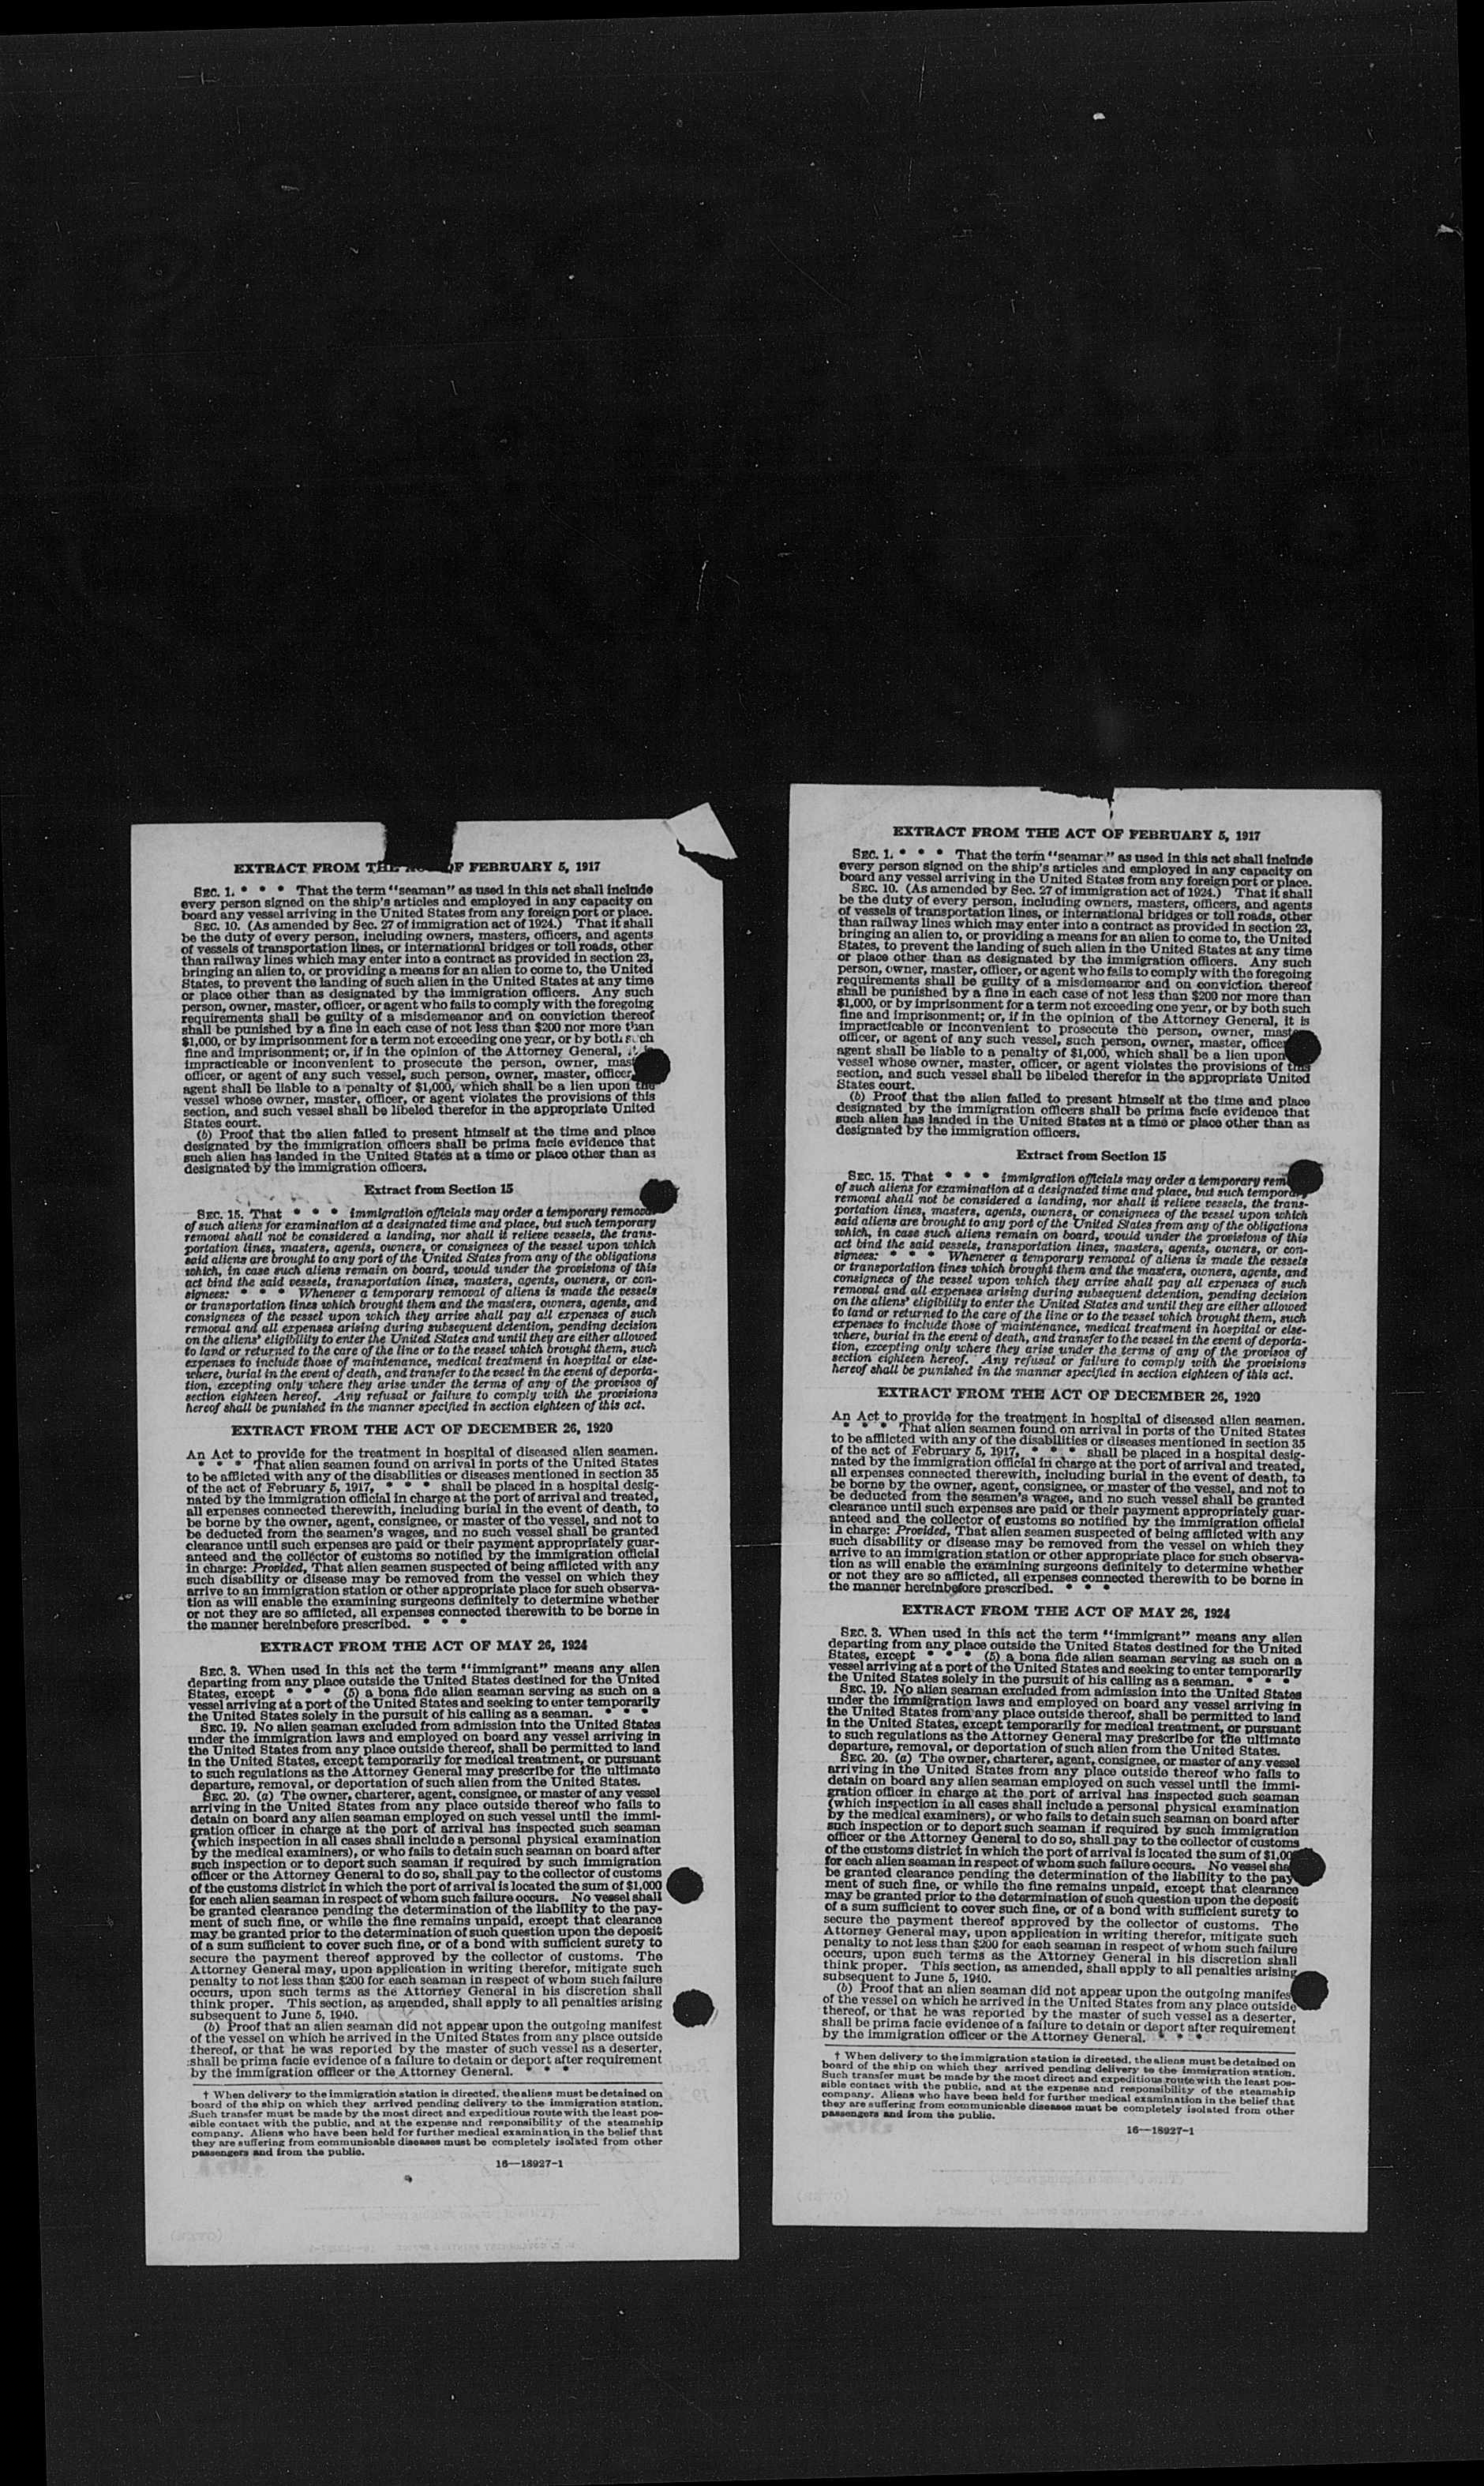 EXTRACT FROM THE OF FEBRUARY 5, 1917
SEC. 1. * * * That the term "seaman" as used in this act shall include
every person signed on the ship's articles and employed in any capacity on
board any vessel arriving in the United States from any foreign port or place.
SEC. 10. (As amended by Sec. 27 of immigration act of 1924.) That it shall
be the duty of every person, including owners, masters, officers, and agents
of vessels of transportation lines, or international bridges or toll roads, other
than railway lines which may enter into a contract as provided in section 23,
bringing an alien to, or providing a means for an alien to come to, the United
States, to prevent the landing of such alien in the United States at any time
or place other than as designated by the immigration officers. Any such
person, owner, master, officer, or agent who fails to comply with the foregoing
requirements shall be guilty of a misdemeanor and on conviction thereof
shall be punished by a fine in each case of not less than $200 nor more than
$1,000, or by imprisonment for a term not exceeding one year, or by both such
fine and imprisonment; or, if in the opinion of the Attorney General,
impracticable or inconvenient to prosecute the person, owner, mas
officer, or agent of any such vessel, such person, owner, master, officer,
agent shall be liable to a penalty of $1,000, which shall be a lien upon the
vessel whose owner, master, officer, or agent violates the provisions of this
section, and such vessel shall be libeled therefor in the appropriate United
States court.
(b) Proof that the alien failed to present himself at the time and place
designated by the immigration officers shall be prima facie evidence that
such alien has landed in the United States at a time or place other than as
designated by the immigration officers.
Extract from Section 15
SEC. 15. That * * * immigration officials may order a temporary removal
of such aliens for examination at a designated time and place, but such temporary
removal shall not be considered a landing, nor shall it relieve vessels, the trans-
portation lines, masters, agents, owners, or consignees of the vessel upon which
said aliens are brought to any port of the United States from any of the obligations
which, in case such aliens remain on board, would under the provisions of this
act bind the said vessels, transportation lines, masters, agents, owners, or con-
signees: * * * Whenever a temporary removal of aliens is made the vessels
or transportation lines which brought them and the masters, owners, agents, and
consignees of the vessel upon which they arrive shall pay all expenses of such
removal and all expenses arising during subsequent detention, pending decision
on the aliens' eligibility to enter the United States and until they are either allowed
to land or returned to the care of the line or to the vessel which brought them, such
expenses to include those of maintenance, medical treatment in hospital or else-
where, burial in the event of death, and transfer to the vessel in the event of deporta-
tion, excepting only where they arise under the terms of any of the provisos of
section eighteen hereof. Any refusal or failure to comply with the provisions
hereof shall be punished in the manner specified in section eighteen of this act.
EXTRACT FROM THE ACT OF DECEMBER 26, 1920
An Act to provide for the treatment in hospital of diseased alien seamen.
* * * That alien seamen found on arrival in ports of the United States
to be afflicted with any of the disabilities or diseases mentioned in section 35
of the act of February 5, 1917, * * * shall be placed in a hospital desig-
nated by the immigration official in charge at the port of arrival and treated,
all expenses connected therewith, including burial in the event of death, to
be borne by the owner, agent, consignee, or master of the vessel, and not to
be deducted from the seamen's wages, and no such vessel shall be granted
clearance until such expenses are paid or their payment appropriately guar-
anteed and the collector of customs so notified by the immigration official
in charge: Provided, That alien seamen suspected of being afflicted with any
such disability or disease may be removed from the vessel on which they
arrive to an immigration station or other appropriate place for such observa-
tion as will enable the examining surgeons definitely to determine whether
or not they are so afflicted, all expenses connected therewith to be borne in
the manner hereinbefore prescribed. * * *
EXTRACT FROM THE ACT OF MAY 26, 1924
SEC. 3. When used in this act the term "immigrant" means any alien
departing from any place outside the United States destined for the United
States, except * * * (5) a bona fide alien seaman serving as such on a
vessel arriving at a port of the United States and seeking to enter temporarily
the United States solely in the pursuit of his calling as a seaman. * * *
SEC. 19. No alien seaman excluded from admission into the United States
under the immigration laws and employed on board any vessel arriving in
the United States from any place outside thereof, shall be permitted to land
in the United States, except temporarily for medical treatment, or pursuant
to such regulations as the Attorney General may prescribe for the ultimate
departure, removal, or deportation of such alien from the United States.
SEC. 20. (a) The owner, charterer, agent, consignee, or master of any vessel
arriving in the United States from any place outside thereof who fails to
detain on board any alien seaman employed on such vessel until the immi-
gration officer in charge at the port of arrival has inspected such seaman
(which inspection in all cases shall include a personal physical examination
by the medical examiners), or who fails to detain such seaman on board after
such inspection or to deport such seaman if required by such immigration
officer or the Attorney General to do so, shall pay to the collector of customs
of the customs district in which the port of arrival is located the sum of $1,000
for each alien seaman in respect of whom such failure occurs. No vessel shall
be granted clearance pending the determination of the liability to the pay-
ment of such fine, or while the fine remains unpaid, except that clearance
may be granted prior to the determination of such question upon the deposit
of a sum sufficient to cover such fine, or of a bond with sufficient surety to
secure the payment thereof approved by the collector of customs. The
Attorney General may, upon application in writing therefor, mitigate such
penalty to not less than $200 for each seaman in respect of whom such failure
occurs, upon such terms as the Attorney General in his discretion shall
think proper. This section, as amended, shall apply to all penalties arising
subsequent to June 5, 1940.
(b) Proof that an alien seaman did not appear upon the outgoing manifest
of the vessel on which he arrived in the United States from any place outside
thereof, or that he was reported by the master of such vessel as a deserter,
shall be prima facie evidence of a failure to detain or deport after requirement
by the immigration officer or the Attorney General. * * *
† When delivery to the immigration station is directed, the aliens must be detained on
board of the ship on which they arrived pending delivery to the immigration station.
Such transfer must be made by the most direct and expeditious route with the least pos-
sible contact with the public, and at the expense and responsibility of the steamship
company. Aliens who have been held for further medical examination in the belief that
they are suffering from communicable diseases must be completely isolated from other
passengers and from the public.
16—18927-1
EXTRACT FROM THE ACT OF FEBRUARY 5, 1917
SEC. 1. * * * That the term "seaman" as used in this act shall include
every person signed on the ship's articles and employed in any capacity on
board any vessel arriving in the United States from any foreign port or place.
SEC. 10. (As amended by Sec. 27 of immigration act of 1924.) That it shall
be the duty of every person, including owners, masters, officers, and agents
of vessels of transportation lines, or international bridges or toll roads, other
than railway lines which may enter into a contract as provided in section 23,
bringing an alien to, or providing a means for an alien to come to, the United
States, to prevent the landing of such alien in the United States at any time
or place other than as designated by the immigration officers. Any such
person, owner, master, officer, or agent who fails to comply with the foregoing
requirements shall be guilty of a misdemeanor and on conviction thereof
shall be punished by a fine in each case of not less than $200 nor more than
$1,000, or by imprisonment for a term not exceeding one year, or by both such
fine and imprisonment; or, if in the opinion of the Attorney General, it is
impracticable or inconvenient to prosecute the person, owner, master
officer, or agent of any such vessel, such person, owner, master, officer
agent shall be liable to a penalty of $1,000, which shall be a lien upon
vessel whose owner, master, officer, or agent violates the provisions of this
section, and such vessel shall be libeled therefor in the appropriate United
States court.
(b) Proof that the alien failed to present himself at the time and place
designated by the immigration officers shall be prima facie evidence that
such alien has landed in the United States at a time or place other than as
designated by the immigration officers.
Extract from Section 15
SEC. 15. That * * * immigration officials may order a temporary rem
of such aliens for examination at a designated time and place, but such temporary
removal shall not be considered a landing, nor shall it relieve vessels, the trans-
portation lines, masters, agents, owners, or consignees of the vessel upon which
said aliens are brought to any port of the United States from any of the obligations
which, in case such aliens remain on board, would under the provisions of this
act bind the said vessels, transportation lines, masters, agents, owners, or con-
signees: * * * Whenever a temporary removal of aliens is made the vessels
or transportation lines which brought them and the masters, owners, agents, and
consignees of the vessel upon which they arrive shall pay all expenses of such
removal and all expenses arising during subsequent detention, pending decision
on the aliens' eligibility to enter the United States and until they are either allowed
to land or returned to the care of the line or to the vessel which brought them, such
expenses to include those of maintenance, medical treatment in hospital or else-
where, burial in the event of death, and transfer to the vessel in the event of deporta-
tion, excepting only where they arise under the terms of any of the provisos of
section eighteen hereof. Any refusal or failure to comply with the provisions
hereof shall be punished in the manner specified in section eighteen of this act.
EXTRACT FROM THE ACT OF DECEMBER 26, 1920
An Act to provide for the treatment in hospital of diseased alien seamen.
* * * That alien seamen found on arrival in ports of the United States
to be afflicted with any of the disabilities or diseases mentioned in section 35
of the act of February 5, 1917, * * * shall be placed in a hospital desig-
nated by the immigration official in charge at the port of arrival and treated,
all expenses connected therewith, including burial in the event of death, to
be borne by the owner, agent, consignee, or master of the vessel, and not to
be deducted from the seamen's wages, and no such vessel shall be granted
clearance until such expenses are paid or their payment appropriately guar-
anteed and the collector of customs so notified by the immigration official
in charge: Provided, That alien seamen suspected of being afflicted with any
such disability or disease may be removed from the vessel on which they
arrive to an immigration station or other appropriate place for such observa-
tion as will enable the examining surgeons definitely to determine whether
or not they are so afflicted, all expenses connected therewith to be borne in
the manner hereinbefore prescribed. * * *
EXTRACT FROM THE ACT OF MAY 26, 1924
SEC. 3. When used in this act the term "immigrant" means any alien
departing from any place outside the United States destined for the United
States, except * * * (5) a bona fide alien seaman serving as such on a
vessel arriving at a port of the United States and seeking to enter temporarily
the United States solely in the pursuit of his calling as a seaman. * * *
SEC. 19. No alien seaman excluded from admission into the United States
under the immigration laws and employed on board any vessel arriving in
the United States from any place outside thereof, shall be permitted to land
in the United States, except temporarily for medical treatment, or pursuant
to such regulations as the Attorney General may prescribe for the ultimate
departure, removal, or deportation of such alien from the United States.
SEC. 20. (a) The owner, charterer, agent, consignee, or master of any vessel
arriving in the United States from any place outside thereof who fails to
detain on board any alien seaman employed on such vessel until the immi-
gration officer in charge at the port of arrival has inspected such seaman
(which inspection in all cases shall include a personal physical examination
by the medical examiners), or who fails to detain such seaman on board after
such inspection or to deport such seaman if required by such immigration
officer or the Attorney General to do so, shall pay to the collector of customs
of the customs district in which the port of arrival is located the sum of $1,00
for each alien seaman in respect of whom such failure occurs. No vessel sha
be granted clearance pending the determination of the liability to the pay
ment of such fine, or while the fine remains unpaid, except that clearance
may be granted prior to the determination of such question upon the deposit
of a sum sufficient to cover such fine, or of a bond with sufficient surety to
secure the payment thereof approved by the collector of customs. The
Attorney General may, upon application in writing therefor, mitigate such
penalty to not less than $200 for each seaman in respect of whom such failure
occurs, upon such terms as the Attorney General in his discretion shall
think proper. This section, as amended, shall apply to all penalties arising
subsequent to June 5, 1940.
(b) Proof that an alien seaman did not appear upon the outgoing manifes
of the vessel on which he arrived in the United States from any place outside
thereof, or that he was reported by the master of such vessel as a deserter,
shall be prima facie evidence of a failure to detain or deport after requirement
by the immigration officer or the Attorney General. * * *
† When delivery to the immigration station is directed, the aliens must be detained on
board of the ship on which they arrived pending delivery to the immigration station.
Such transfer must be made by the most direct and expeditious route with the least pos-
sible contact with the public, and at the expense and responsibility of the steamship
company. Aliens who have been held for further medical examination in the belief that
they are suffering from communicable diseases must be completely isolated from other
passengers and from the public.
16—18927-1